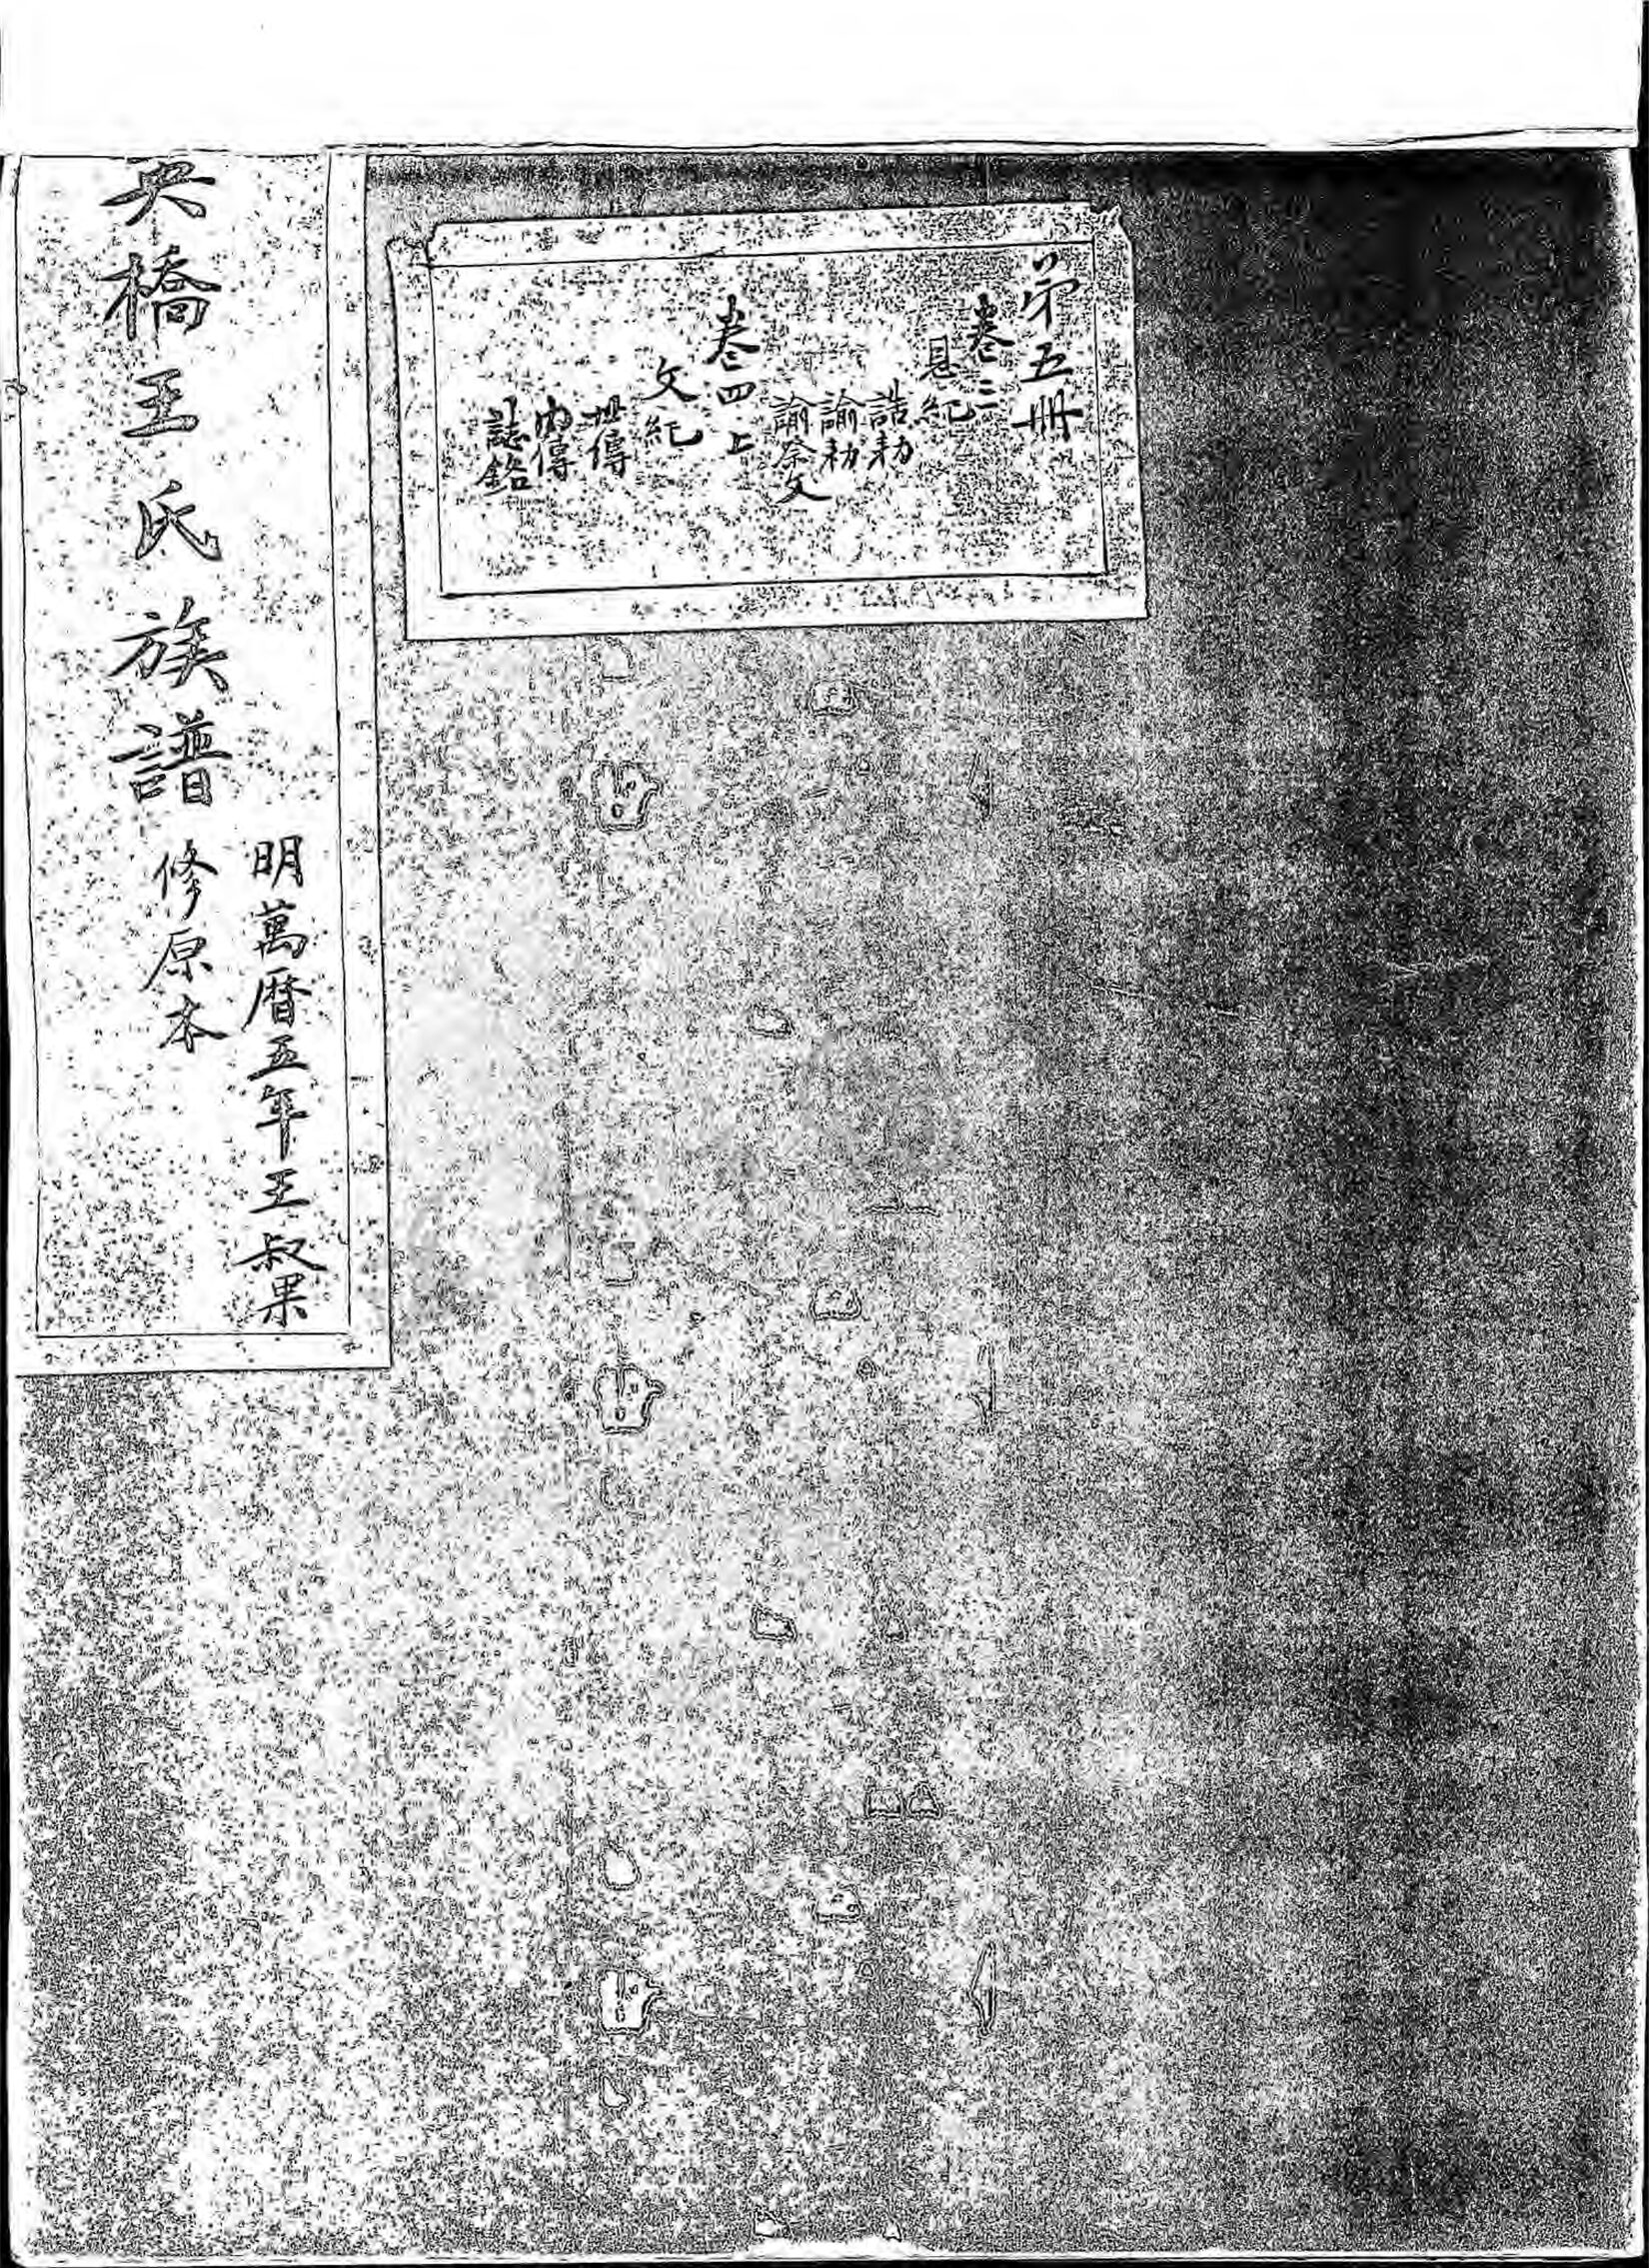 第五册
卷三
恩紀
誥勅
諭勅
諭祭文
卷四上
文紀
世傳
內傳
誌銘
英橋王氏族譜
明萬曆五年王叔果
修原本